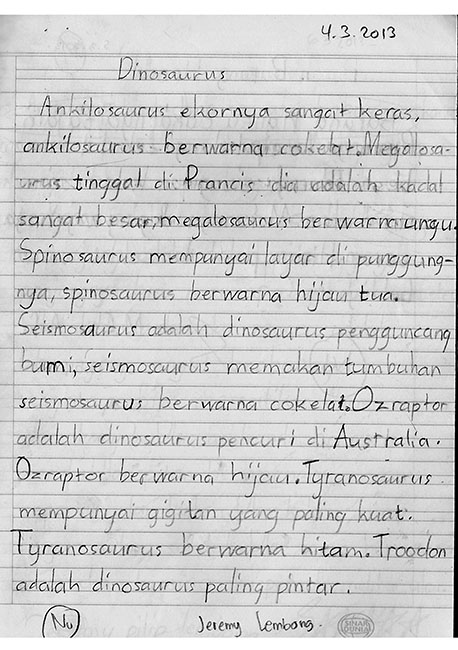 4.3.2013
Dinosaurus
Ankilosaurus ekornya sangat keras,
ankilosaurus berwarna cokelat. Megalosa-
urus tinggal di Prancis dia adalah kadal
sangat besar, megalosaurus berwarna ungu.
Spinosaurus mempunyai layar di punggung-
nya, spinosaurus berwarna hijau tua.
Seismosaurus adalah dinosaurus pengguncang
bumi, seismosaurus memakan tumbuhan
seismosaurus berwarna cokelat. Ozraptor
adalah dinosaurus pencuri di Australia.
Ozraptor berwarna hijau. Tyranosaurus
mempunyai gigitan yang paling kuat.
Tyranosaurus berwarna hitam. Troodon
adalah dinosaurus paling pintar.
Jeremy Lembong.
SINAR DUNIA